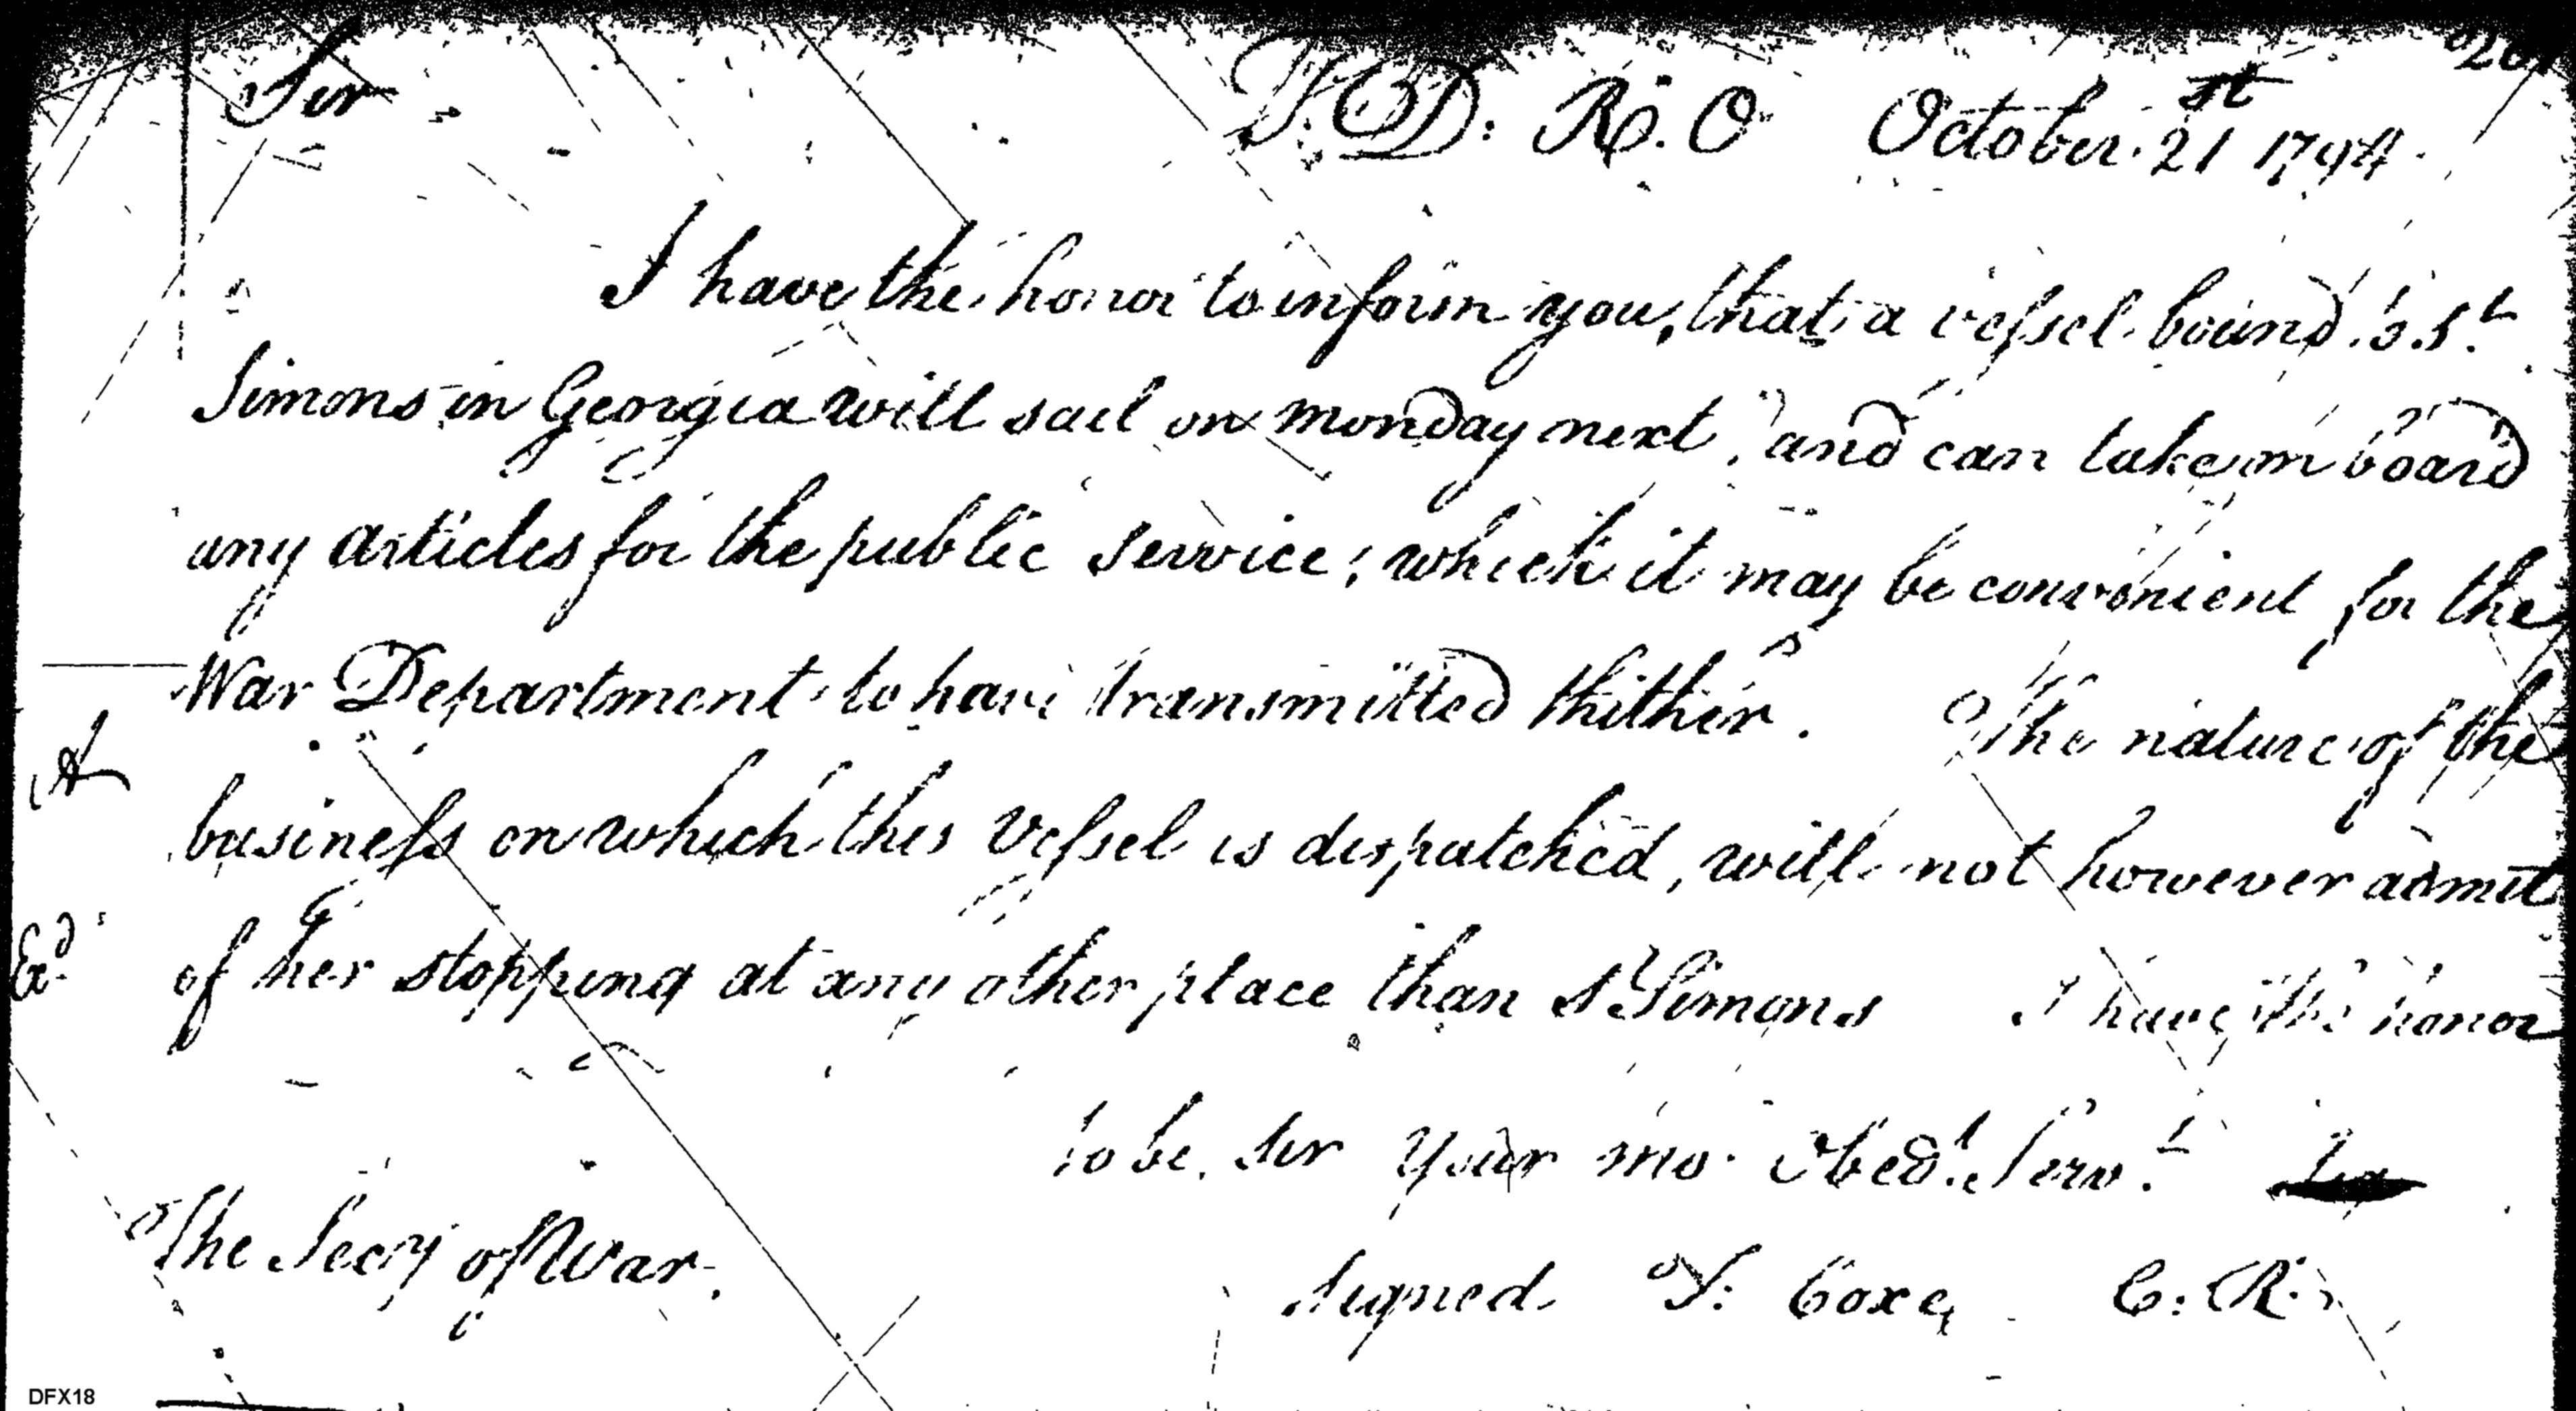 Sir T. D: R. O October 21st 1794.
I have the honor to inform you, that a vessel bound to St.
Simons in Georgia will sail on monday next, and can take on board
any articles for the public service, which it may be convenient for the
War Department to have transmitted thither. The nature of the
A
business on which this Vessel is dispatched, will not however admit
Exd. of her stopping at any other place than St Simons I have the honor
to be, Sir Your mo. Obedt. Servt.
The Secry of War.
Signed T: Coxe, C: R.
DFX18